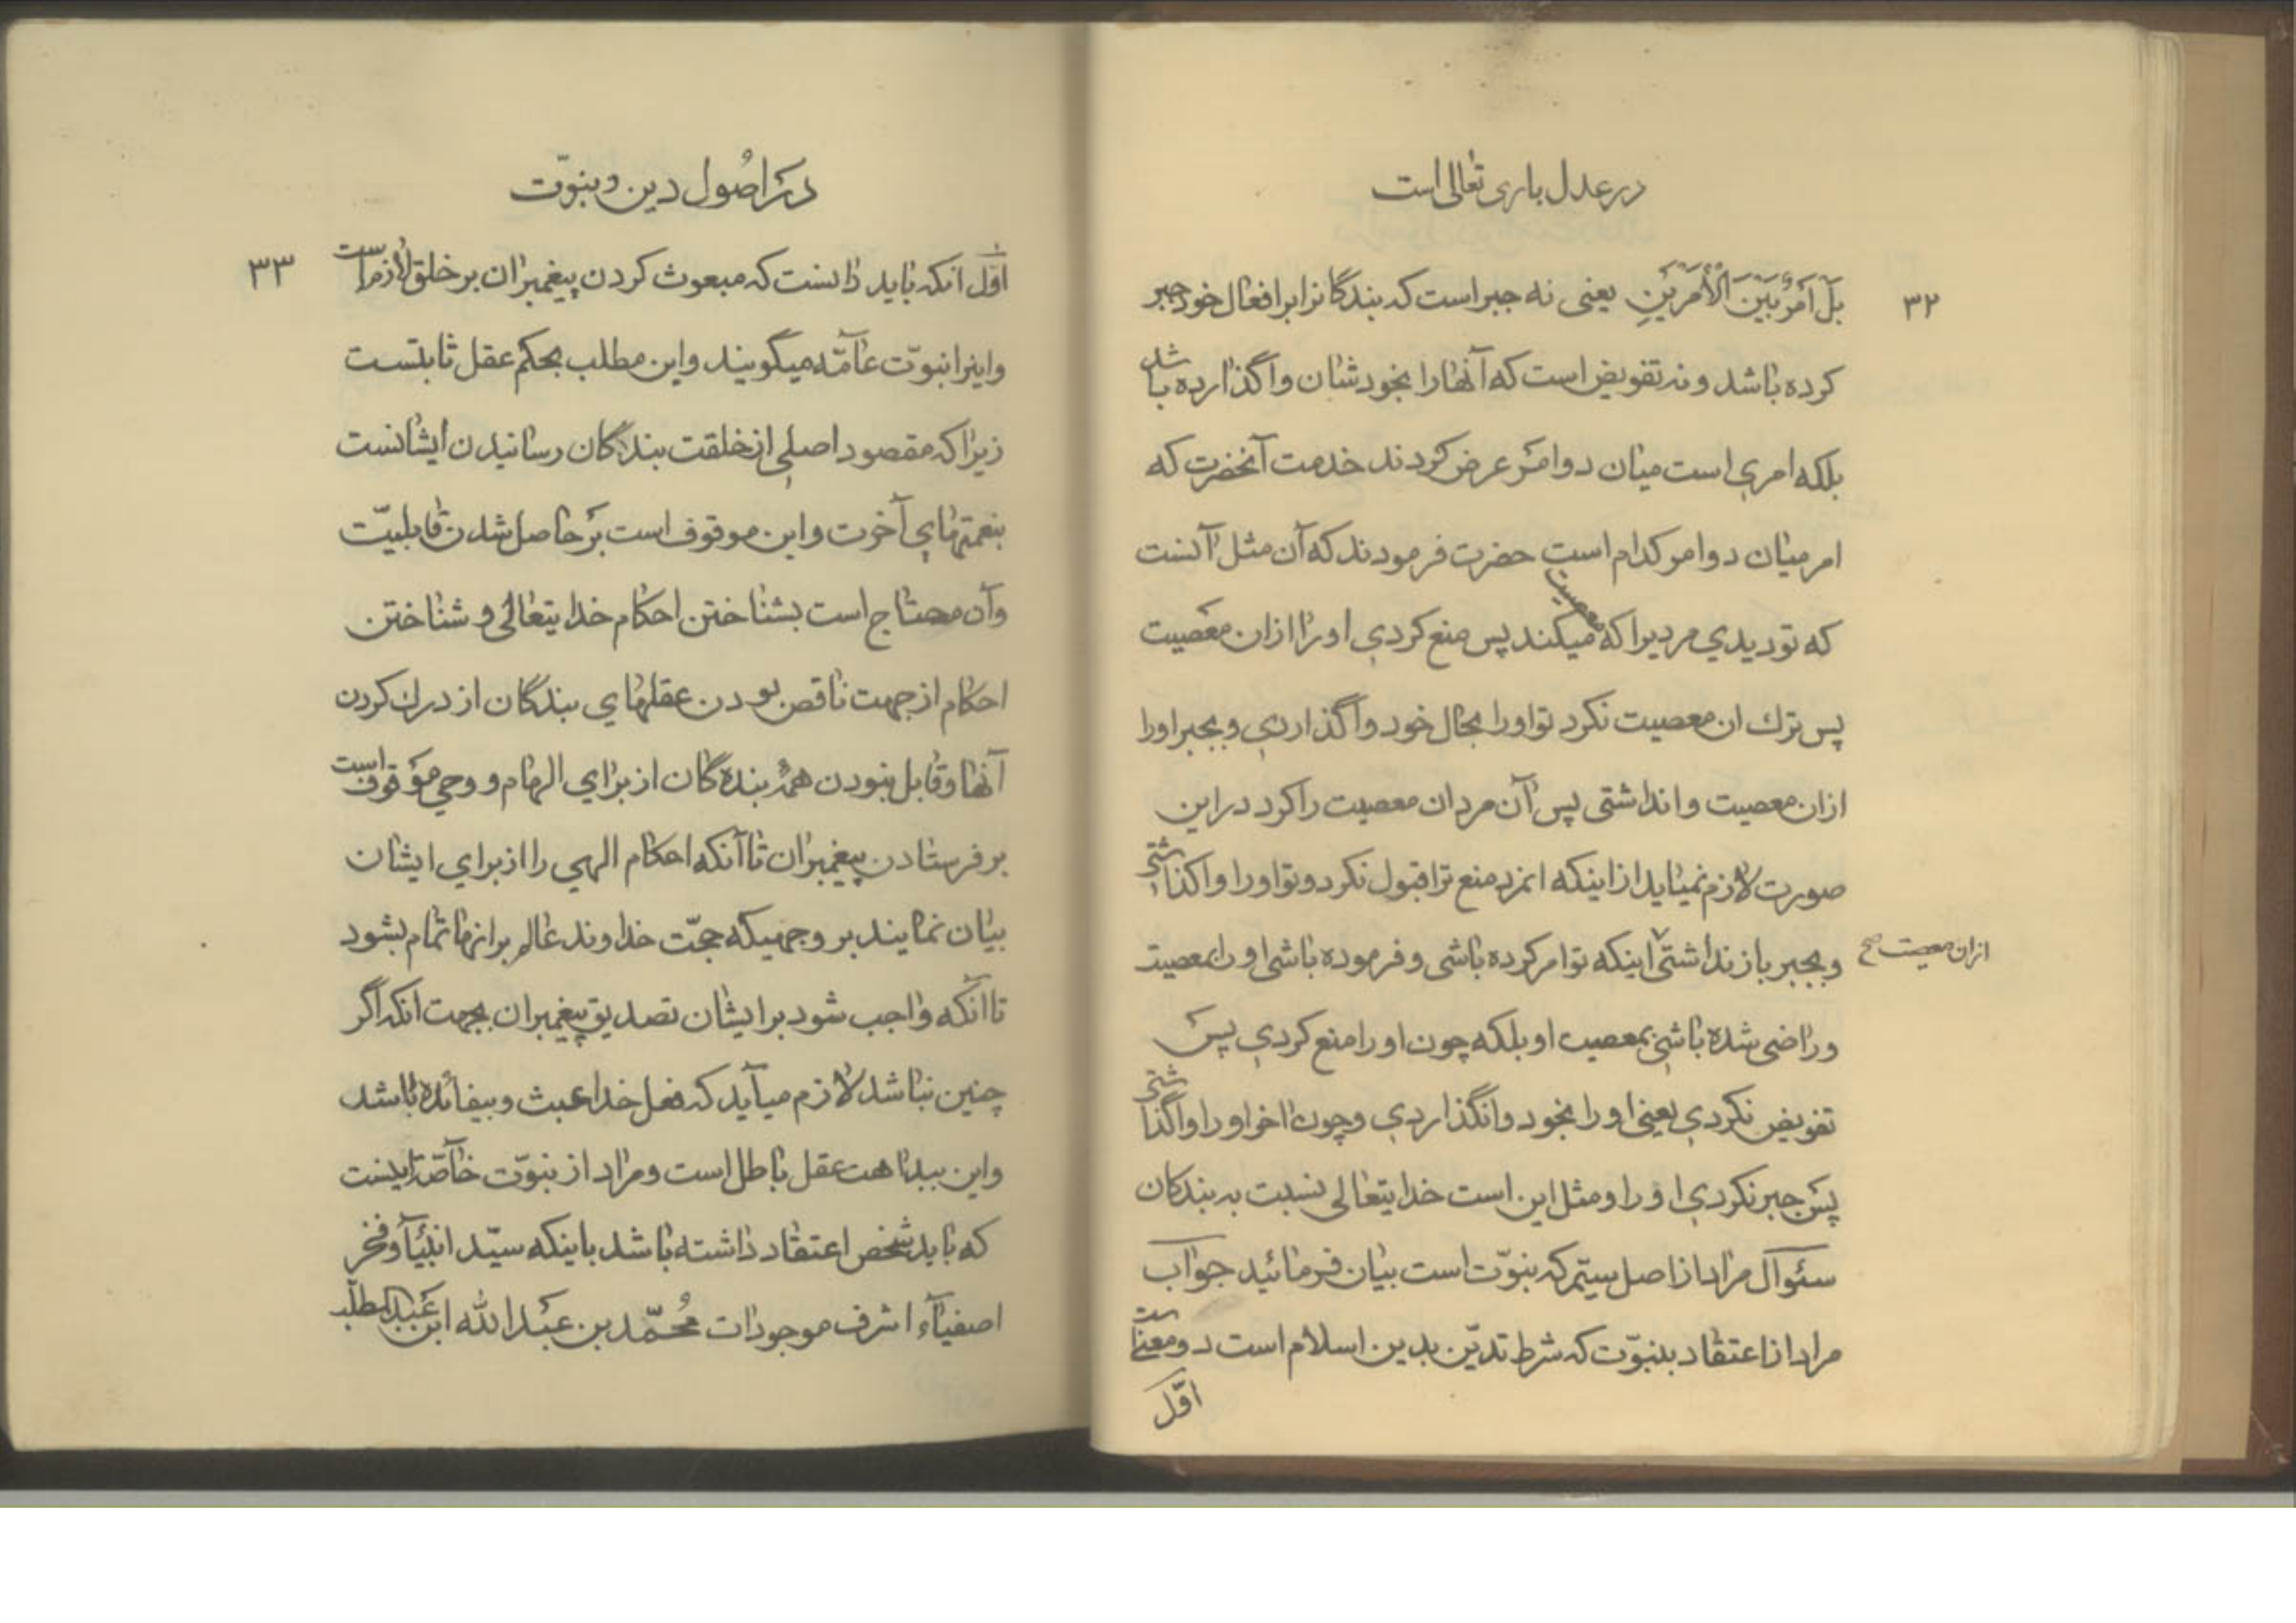 در عدل باری تعالی است
۳۲
بَلْ اَمْرٌ بَیْنَ الْاَمْرَیْنِ یعنی نه جبر است که بندگانرا بر افعال خود جبر
کرده باشد و نه تفویض است که آنها را بخودشان واگذارده باشد
بلکه امری است میان دو امر عرض کردند خدمت آنحضرت که
امر میان دو امر کدام است حضرت فرمودند که آن مثل آنست
که تو دیدی مردیرا که معصیت میکند پس منع کردی او را ازان معصیت
پس ترك ان معصیت نکرد تو او را بحال خود واگذاردی و بجبر اورا
ازان معصیت وانداشتی پس آن مرد ان معصیت را کرد در این
صورت لازم نمیاید از اینکه انمرد منع ترا قبول نکرد و تو او را واگذاشتی
و بجبر باز نداشتی اینکه تو امر کرده باشی و فرموده باشی او را بمعصیت
ازان معصیت صح
و راضی شده باشی بمعصیت او بلکه چون او را منع کردی پس
تفویض نکردی یعنی او را بخود وانگذاردی و چون اخر او را واگذاشتی
پس جبر نکردی او را و مثل این است خدایتعالی نسبت به بندکان
سئوال مراد از اصل سیّم که نبوّت است بیان فرمائید جواب
مراد از اعتقاد بنبوّت که شرط تدیّن بدین اسلام است دو معنی است
اوّل
در اصُول دین و نبوّت
۳۳
اوّل انکه باید دانست که مبعوث کردن پیغمبران بر خلق لازم است
و اینرا نبوّت عآمّه میگویند و این مطلب بحکم عقل ثابتست
زیرا که مقصود اصلی از خلقت بندگان رسانیدن ایشانست
بنعمتهای آخرت و این موقوف است بر حاصل شدن قابلیّت
و آن محتاج است بشناختن احکام خدایتعالی و شناختن
احکام از جهت ناقص بودن عقلهای بندگان از درك کردن
آنها و قابل نبودن همه بنده گان از برای الهام و وحی موقوف است
بر فرستادن پیغمبران تا آنکه احکام الهی را از برای ایشان
بیان نمایند بر وجهیکه حجّت خداوند عالم بر انها تمام بشود
تا انکه واجب شود بر ایشان تصدیق پیغمبران بجهت انکه اگر
چنین نباشد لازم میآید که فعل خدا عبث و بیفائده باشد
و این ببداهت عقل باطل است و مراد از نبوّت خآصّه اینست
که باید شخص اعتقاد داشته باشد باینکه سیّد انبیآء و فخر
اصفیآء اشرف موجودات مُحمّد بن عبدالله ابن عبدالمطلّب